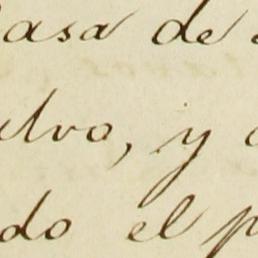 asa de
lvo, y
do el p